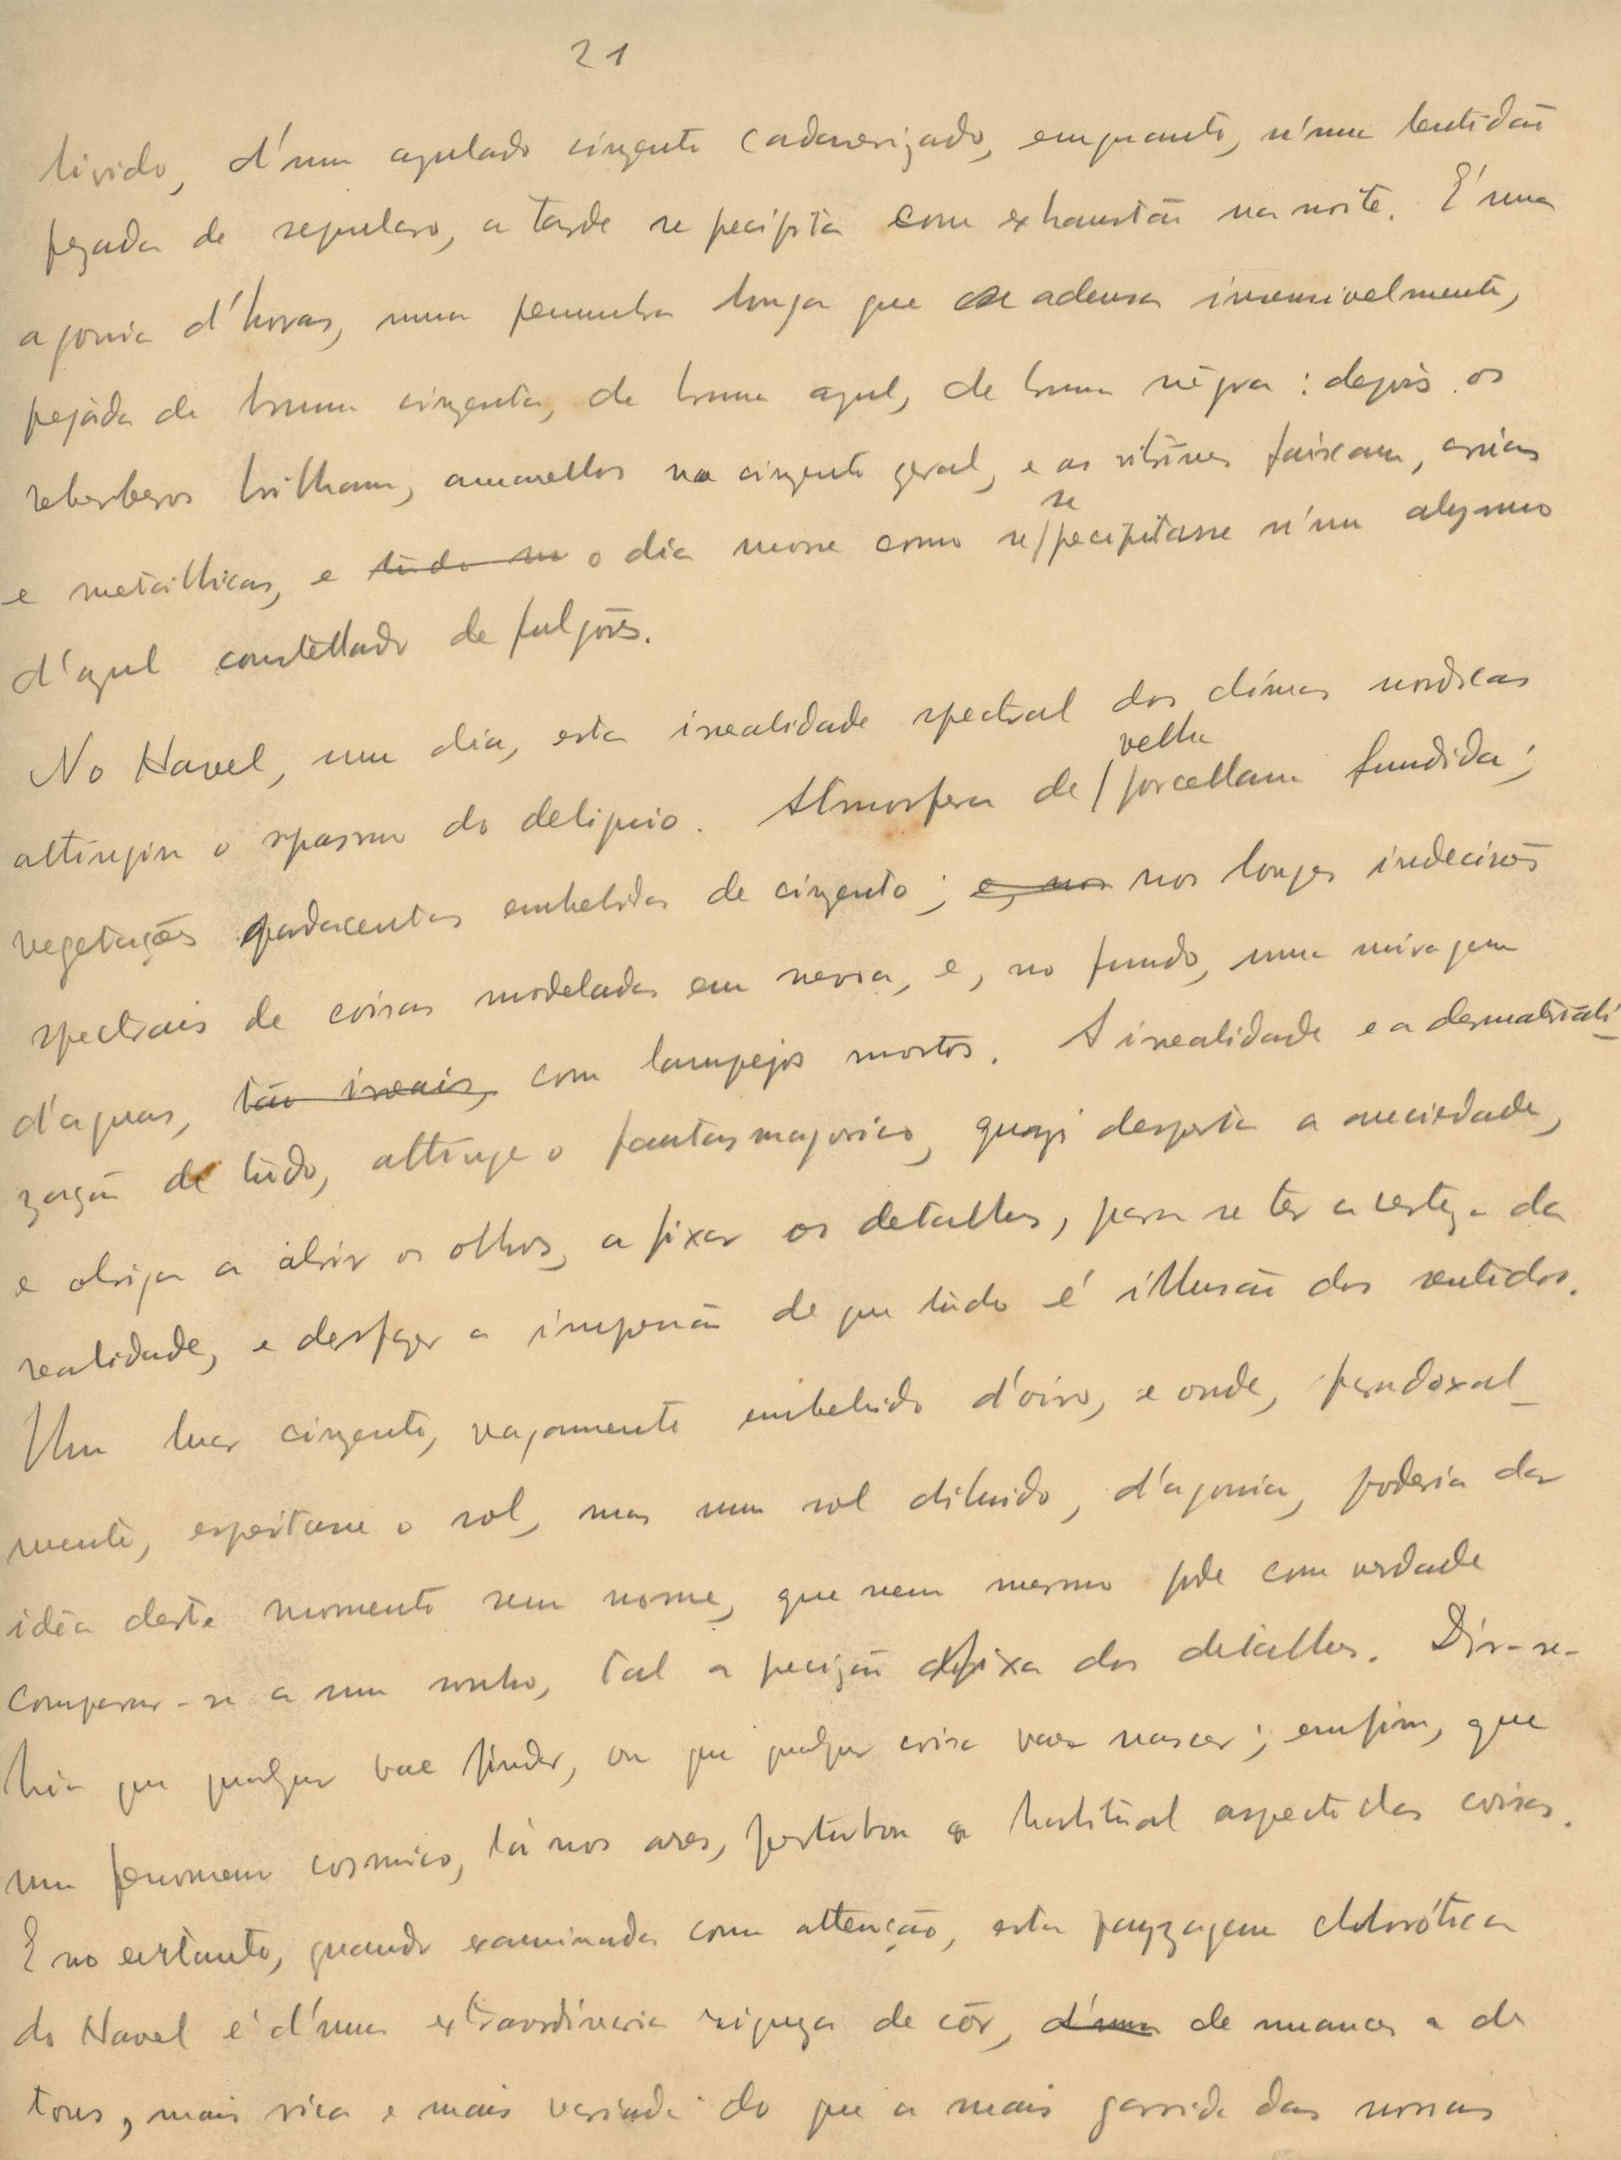 21
livido, d'um azulado cinzento cadaverizado, emquanto, n'uma lentidão
pezada de sepulcro, a tarde se precipita com exhaustão na noite. É uma
agonia d'horas, uma penumbra longa que se adensa insensivelmente,
pejada de bruma cinzenta, de bruma azul, de bruma negra: depois os
reberberos brilham, amarellos no cinzento geral, e as vitrines faiscam, cruas
e metallicas, e tudo se o dia morre como se
se
precipitasse n'um abysmo
d'azul constellado de fulgôres.
No Havel, um dia, esta irrealidade spectral dos climas nordicos
attingiu o spasmo do deliquio. Atmosfera de
velha
porcellana fundida;
vegetações pardacentas embebidas de cinzento; e, nos nos longes indecisões
spectraes de coisas modeladas em nevoa, e, no fundo, uma miragem
d'aguas, tão irreais, com lampejos mortos. A irrealidade e a desmateriali-
zação de tudo, attinge o fantasmagorico, quazi desperta a anciedade,
e obriga a abrir os olhos, a fixar os detalhes, para se ter a certeza da
realidade, e desfazer a impressão de que tudo é illusão dos sentidos.
Um luar cinzento, vagamente embebido d'oiro, e onde, paradoxal-
mente, espeitasse o sol, mas um sol diluido, d'agonia, poderia dar
idéa deste momento sem nome, que nem mesmo pode com verdade
comparar-se a um sonho, tal a precizão fixa dos detalhes. Dir-se-
hia que qualquer vae findar, ou que qualquer coisa vae nascer; emfim, que
um fenomeno cosmico, lá nos ares, perturbou o habitual aspecto das coisas.
E no entanto, quando examinada com attenção, esta payzagem chlorótica
do Havel é d'uma extraordinaria riqueza de côr, d'uma de nuances e de
tons, mais rica e mais variada do que a mais garrida das nossas